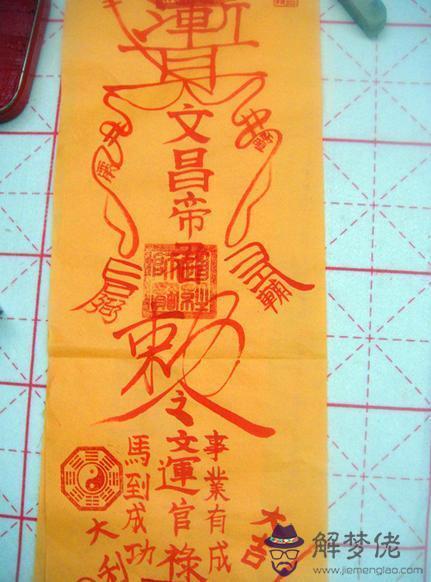 文昌帝君
敕令
大吉
事業有成
文運官祿
馬到成功
大利
解梦佬
www.jiemenglao.com